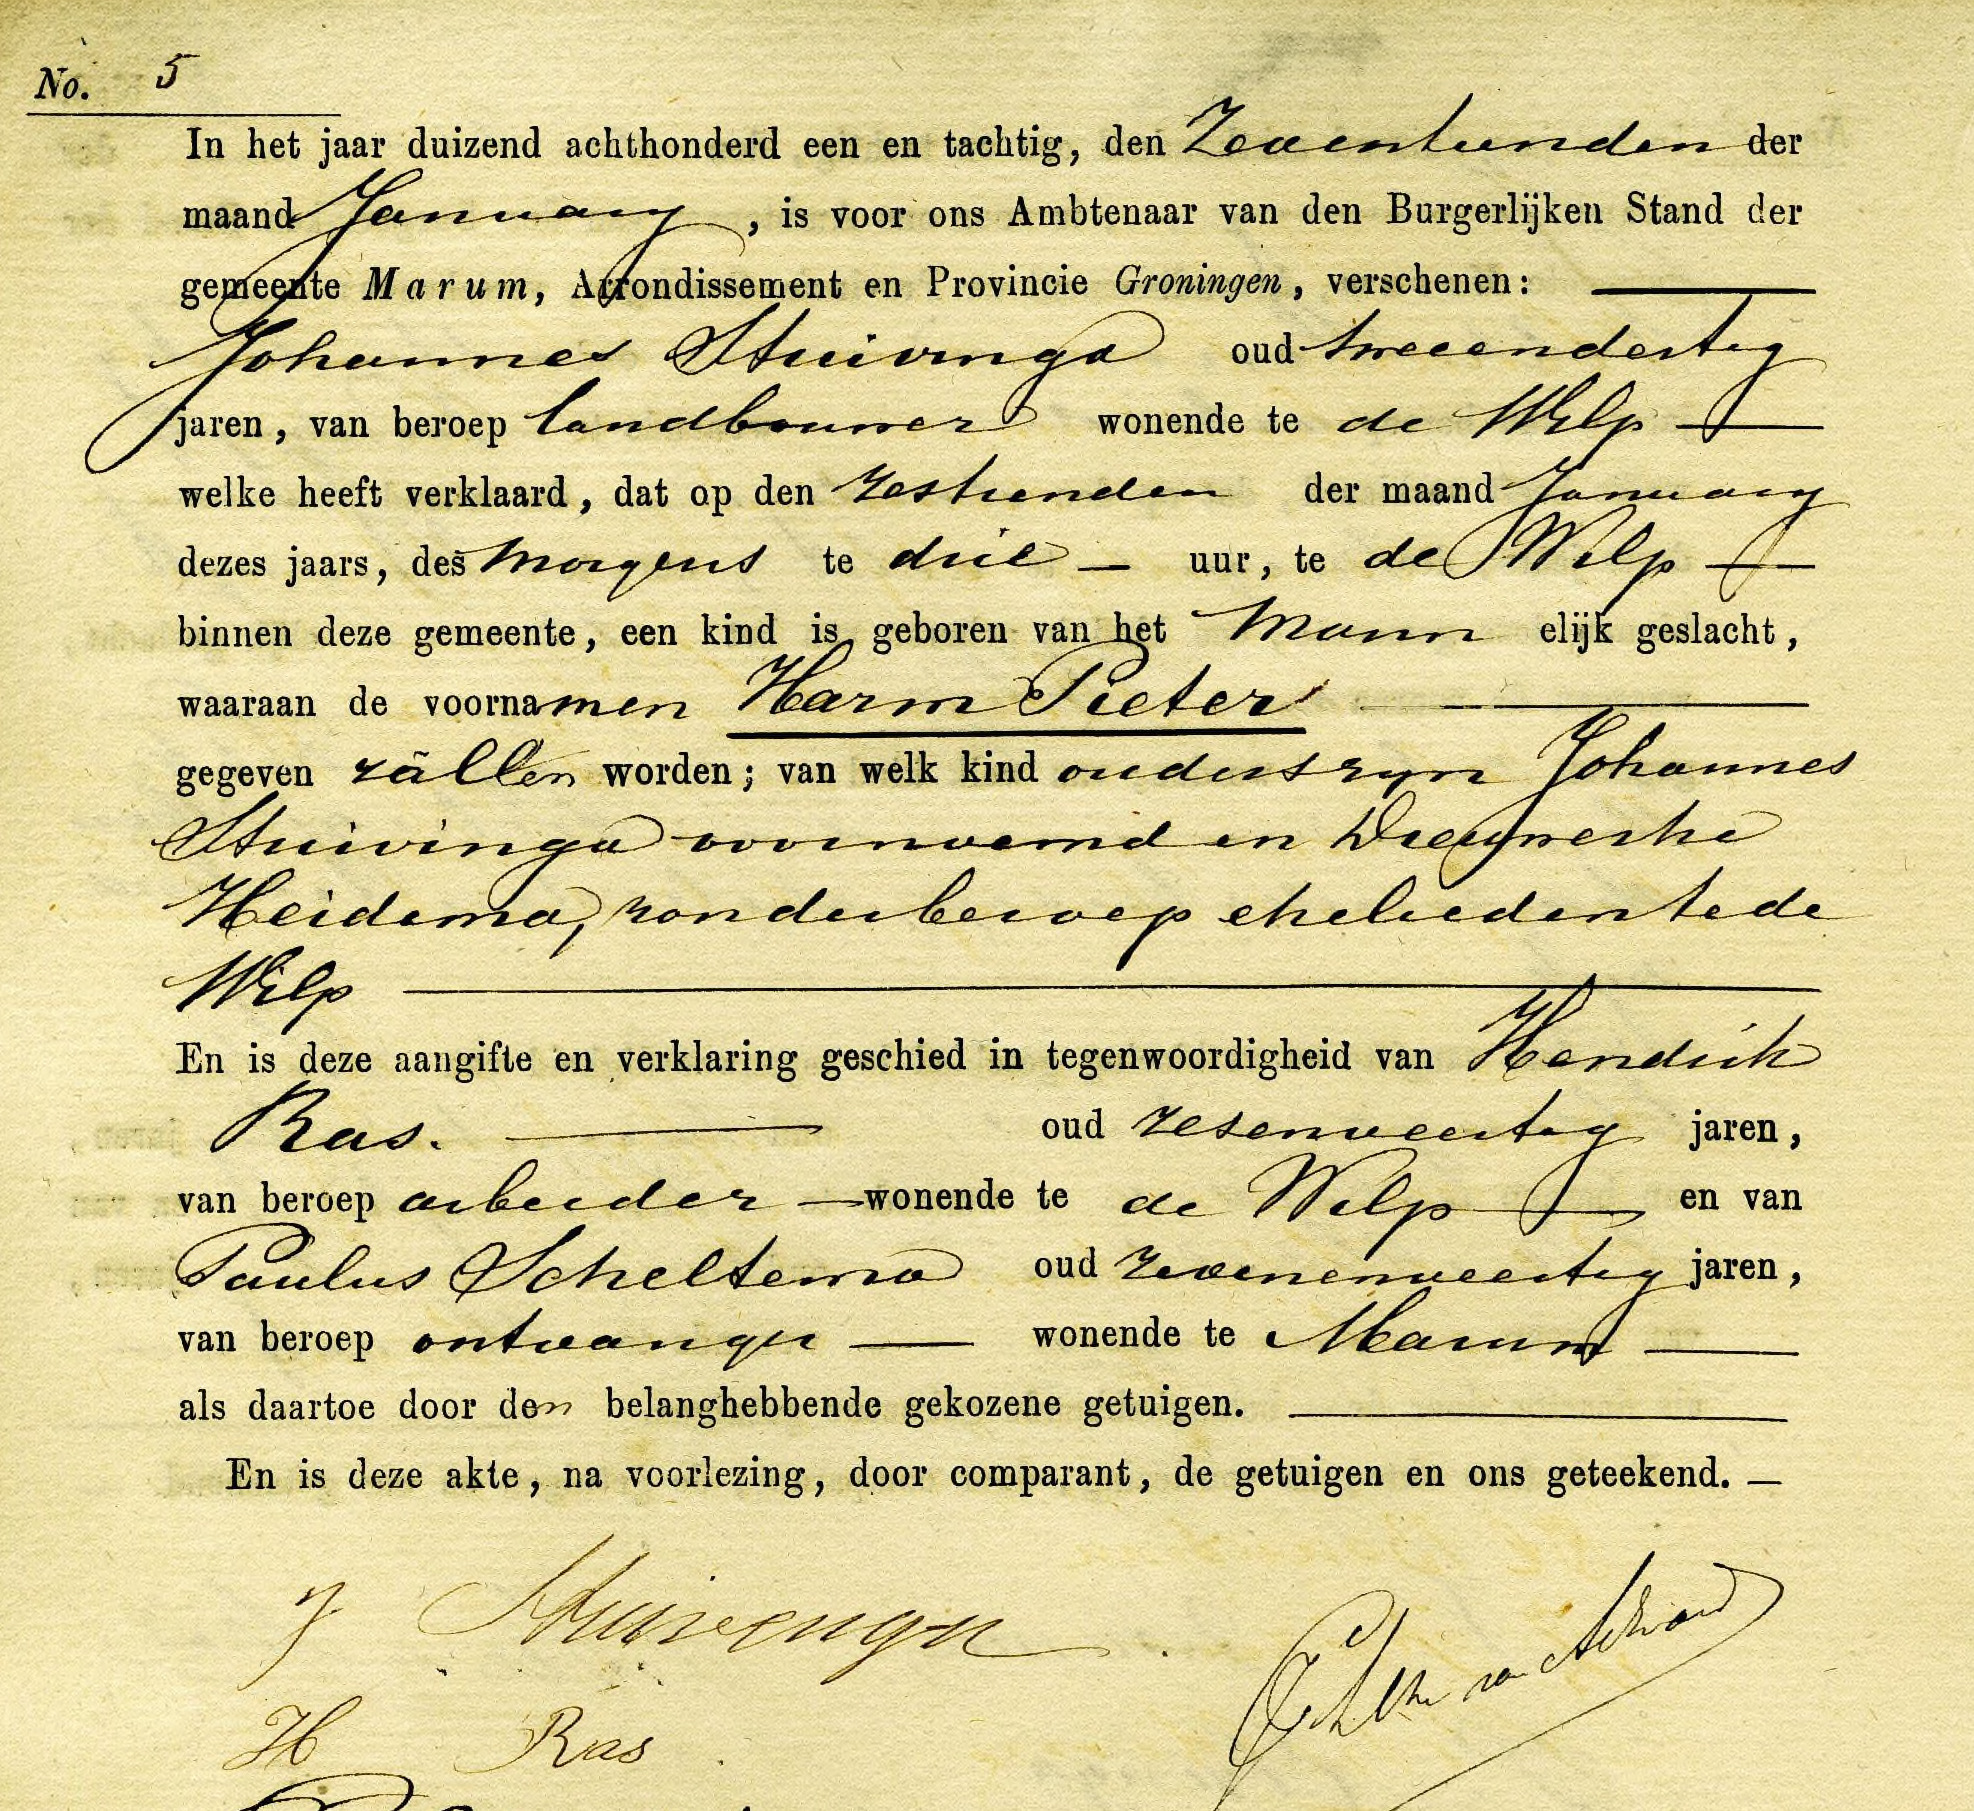 No. 5
In het jaar duizend achthonderd een en tachtig, den Zeventienden der
maand January, is voor ons Ambtenaar van den Burgerlijken Stand der
gemeente Marum, Arrondissement en Provincie Groningen, verschenen:
Johannes Stuivinga oud tweeendertig
jaren, van beroep landbouwer wonende te de Wilp
welke heeft verklaard, dat op den zestienden der maand January
dezes jaars, des morgens te drie uur, te de Wilp
binnen deze gemeente, een kind is geboren van het Mannelijk geslacht,
waaraan de voornamen Harm Pieter
gegeven zullen worden; van welk kind ouders zijn Johannes
Stuivinga voornoemd en Dieuwerke
Heidema, zonder beroep ehelieden te de
Wilp
En is deze aangifte en verklaring geschied in tegenwoordigheid van Hendrik
Ras. oud zesenveertig jaren,
van beroep arbeider wonende te de Wilp en van
Paulus Scheltema oud zevenenveertig jaren,
van beroep ontvanger wonende te Marum
als daartoe door den belanghebbende gekozene getuigen.
En is deze akte, na voorlezing, door comparant, de getuigen en ons geteekend.
J Stuivenga
H Ras